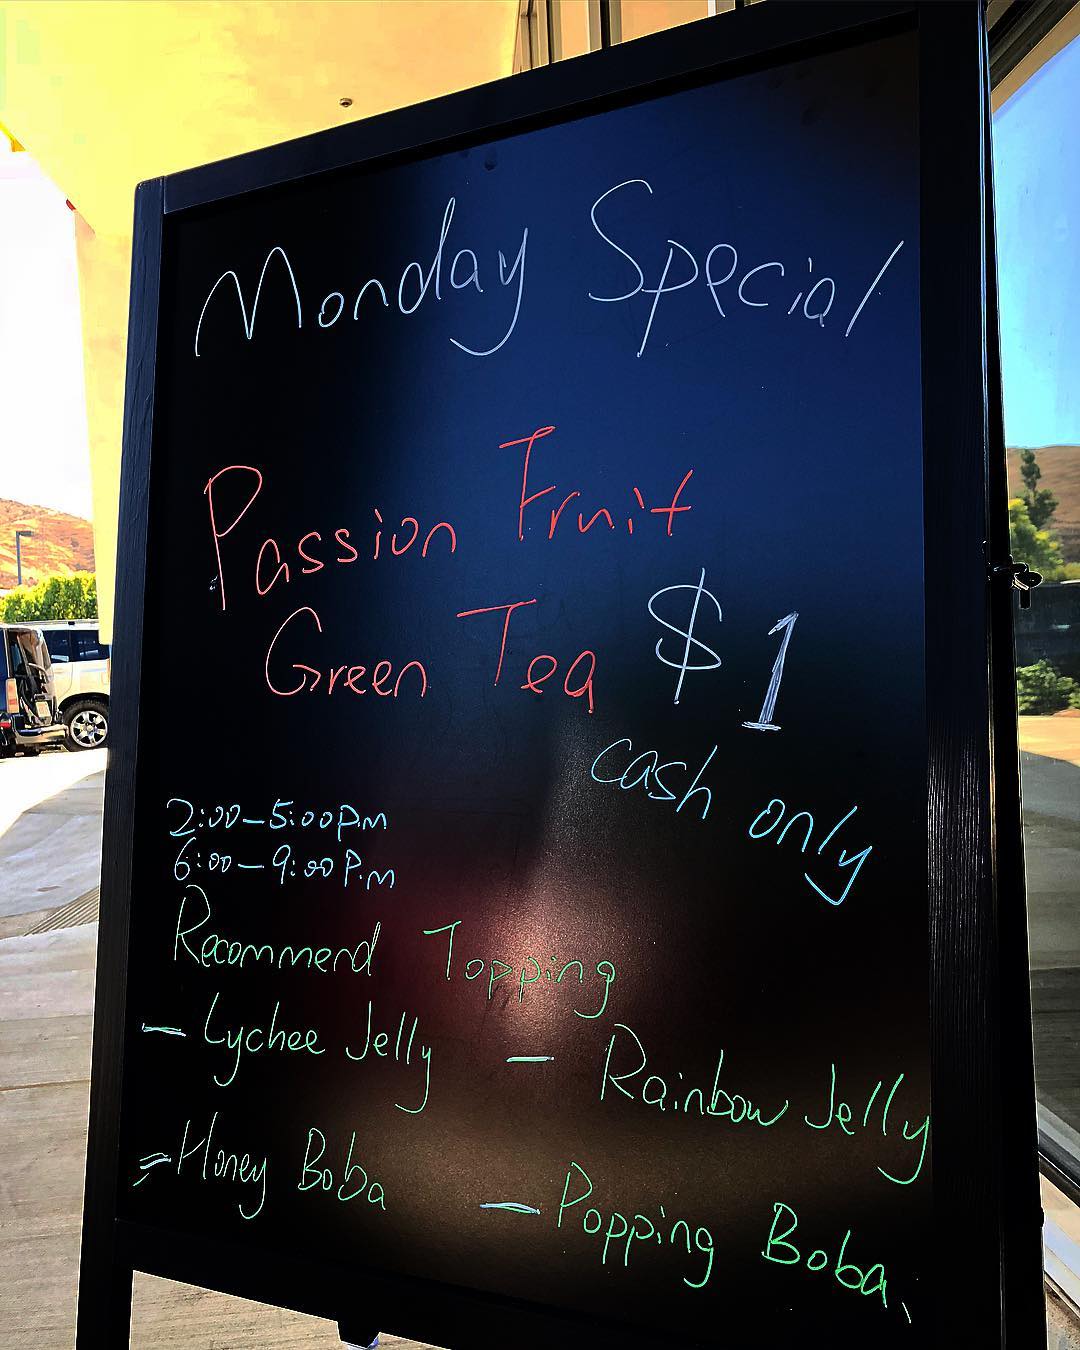 Monday Special
Passion Fruit
Green Tea $1
cash only
2:00-5:00p.m
6:00-9:00P.m
Recommend Topping
- Lychee Jelly - Rainbow Jelly
- Honey Boba - Popping Boba.